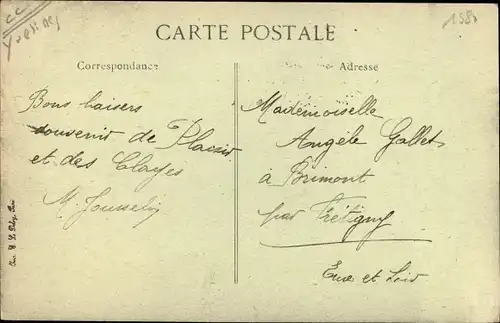 cc
Yvelines
CARTE POSTALE
Correspondance
Adresse
Bons baisers
souvenir de Plaisir
et des Clayes
M. Jousselin
Mademoiselle
Angèle Gallet
à Brimont
par Frétigny
Eure et Loir